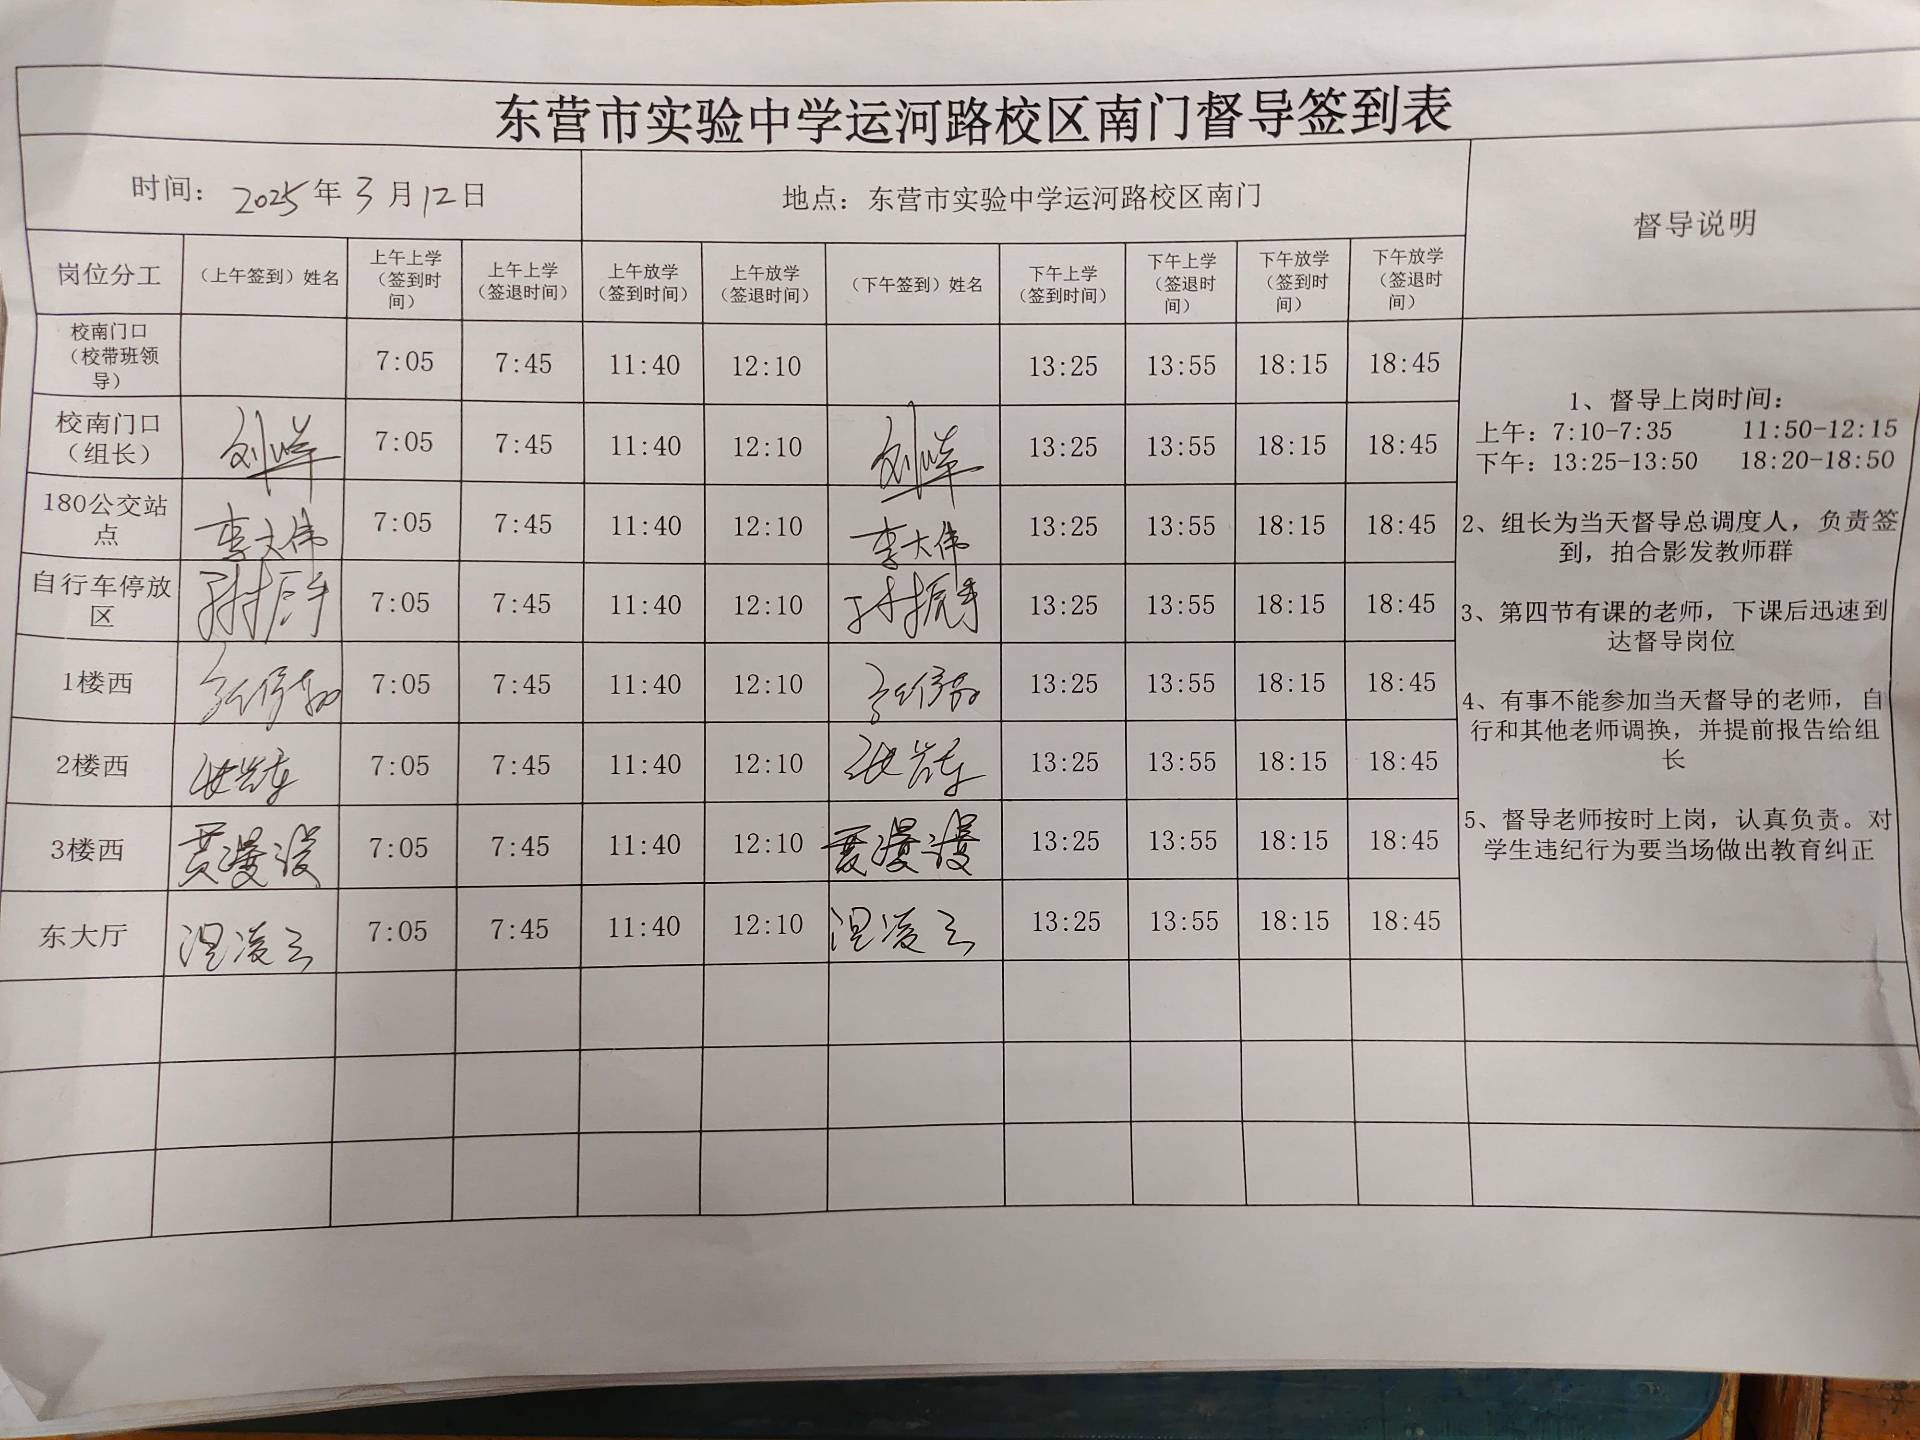 东营市实验中学运河路校区南门督导签到表
时间： 2025年3月12日 地点：东营市实验中学运河路校区南门 督导说明
岗位分工 （上午签到）姓名 上午上学（签到时间） 上午上学（签退时间） 上午放学（签到时间） 上午放学（签退时间） （下午签到）姓名 下午上学（签到时间） 下午上学（签退时间） 下午放学（签到时间） 下午放学（签退时间）
校南门口（校带班领导） 7:05 7:45 11:40 12:10 13:25 13:55 18:15 18:45
校南门口（组长） 7:05 7:45 11:40 12:10 13:25 13:55 18:15 18:45
180公交站点 李大伟 7:05 7:45 11:40 12:10 李大伟 13:25 13:55 18:15 18:45
自行车停放区 7:05 7:45 11:40 12:10 13:25 13:55 18:15 18:45
1楼西 7:05 7:45 11:40 12:10 13:25 13:55 18:15 18:45
2楼西 7:05 7:45 11:40 12:10 13:25 13:55 18:15 18:45
3楼西 贾漫漫 7:05 7:45 11:40 12:10 贾漫漫 13:25 13:55 18:15 18:45
东大厅 7:05 7:45 11:40 12:10 13:25 13:55 18:15 18:45
1、督导上岗时间：
上午：7:10-7:35 11:50-12:15
下午：13:25-13:50 18:20-18:50
2、组长为当天督导总调度人，负责签
到，拍合影发教师群
3、第四节有课的老师，下课后迅速到
达督导岗位
4、有事不能参加当天督导的老师，自
行和其他老师调换，并提前报告给组
长
5、督导老师按时上岗，认真负责。对
学生违纪行为要当场做出教育纠正